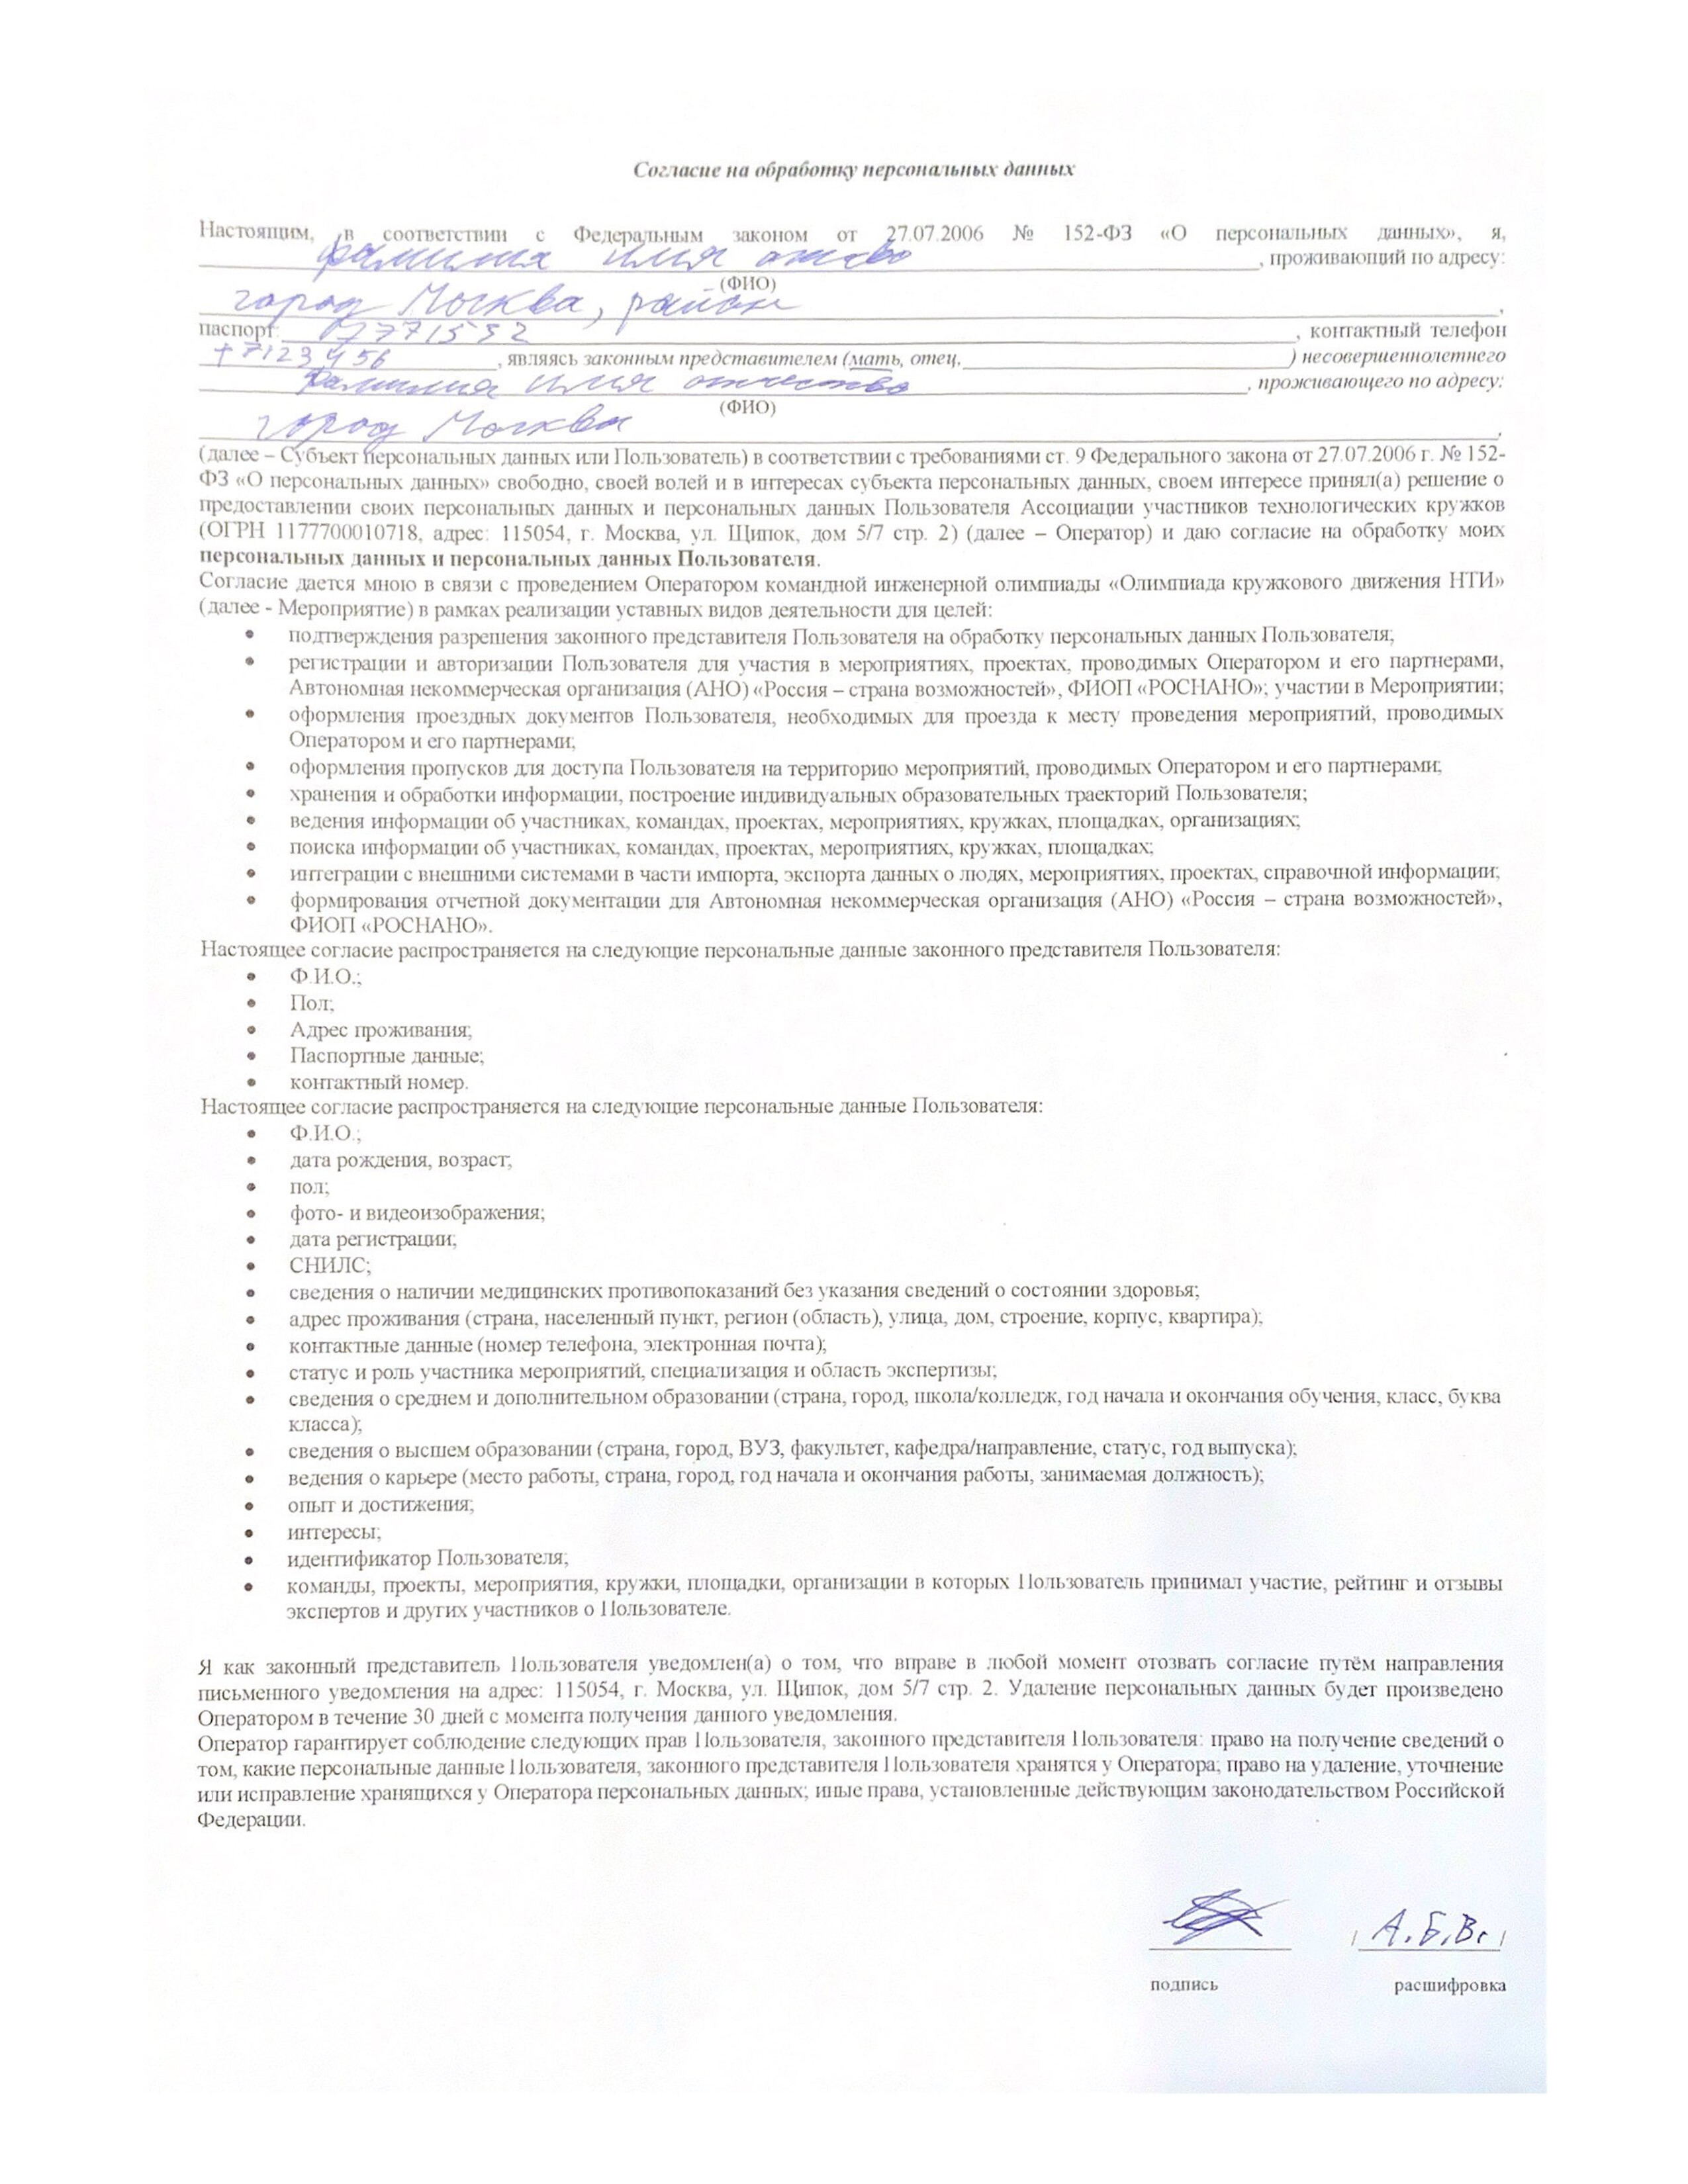 Согласие на обработку персональных данных
Настоящим, в соответствии с Федеральным законом от 27.07.2006 № 152-ФЗ «О персональных данных», я,
фамилия имя отчество, проживающий по адресу:
(ФИО)
город Москва, район,
паспорт: 17771532, контактный телефон
+7123456, являясь законным представителем (мать, отец, ) несовершеннолетнего
фамилия имя отчество, проживающего по адресу:
(ФИО)
город Москва,
(далее – Субъект персональных данных или Пользователь) в соответствии с требованиями ст. 9 Федерального закона от 27.07.2006 г. № 152-
ФЗ «О персональных данных» свободно, своей волей и в интересах субъекта персональных данных, своем интересе принял(а) решение о
предоставлении своих персональных данных и персональных данных Пользователя Ассоциации участников технологических кружков
(ОГРН 1177700010718, адрес: 115054, г. Москва, ул. Щипок, дом 5/7 стр. 2) (далее – Оператор) и даю согласие на обработку моих
персональных данных и персональных данных Пользователя.
Согласие дается мною в связи с проведением Оператором командной инженерной олимпиады «Олимпиада кружкового движения НТИ»
(далее - Мероприятие) в рамках реализации уставных видов деятельности для целей:
• подтверждения разрешения законного представителя Пользователя на обработку персональных данных Пользователя;
• регистрации и авторизации Пользователя для участия в мероприятиях, проектах, проводимых Оператором и его партнерами,
Автономная некоммерческая организация (АНО) «Россия – страна возможностей», ФИОП «РОСНАНО»; участии в Мероприятии;
• оформления проездных документов Пользователя, необходимых для проезда к месту проведения мероприятий, проводимых
Оператором и его партнерами;
• оформления пропусков для доступа Пользователя на территорию мероприятий, проводимых Оператором и его партнерами;
• хранения и обработки информации, построение индивидуальных образовательных траекторий Пользователя;
• ведения информации об участниках, командах, проектах, мероприятиях, кружках, площадках, организациях;
• поиска информации об участниках, командах, проектах, мероприятиях, кружках, площадках;
• интеграции с внешними системами в части импорта, экспорта данных о людях, мероприятиях, проектах, справочной информации;
• формирования отчетной документации для Автономная некоммерческая организация (АНО) «Россия – страна возможностей»,
ФИОП «РОСНАНО».
Настоящее согласие распространяется на следующие персональные данные законного представителя Пользователя:
• Ф.И.О.;
• Пол;
• Адрес проживания;
• Паспортные данные;
• контактный номер.
Настоящее согласие распространяется на следующие персональные данные Пользователя:
• Ф.И.О.;
• дата рождения, возраст;
• пол;
• фото- и видеоизображения;
• дата регистрации;
• СНИЛС;
• сведения о наличии медицинских противопоказаний без указания сведений о состоянии здоровья;
• адрес проживания (страна, населенный пункт, регион (область), улица, дом, строение, корпус, квартира);
• контактные данные (номер телефона, электронная почта);
• статус и роль участника мероприятий, специализация и область экспертизы;
• сведения о среднем и дополнительном образовании (страна, город, школа/колледж, год начала и окончания обучения, класс, буква
класса);
• сведения о высшем образовании (страна, город, ВУЗ, факультет, кафедра/направление, статус, год выпуска);
• ведения о карьере (место работы, страна, город, год начала и окончания работы, занимаемая должность);
• опыт и достижения;
• интересы;
• идентификатор Пользователя;
• команды, проекты, мероприятия, кружки, площадки, организации в которых Пользователь принимал участие, рейтинг и отзывы
экспертов и других участников о Пользователе.
Я как законный представитель Пользователя уведомлен(а) о том, что вправе в любой момент отозвать согласие путём направления
письменного уведомления на адрес: 115054, г. Москва, ул. Щипок, дом 5/7 стр. 2. Удаление персональных данных будет произведено
Оператором в течение 30 дней с момента получения данного уведомления.
Оператор гарантирует соблюдение следующих прав Пользователя, законного представителя Пользователя: право на получение сведений о
том, какие персональные данные Пользователя, законного представителя Пользователя хранятся у Оператора; право на удаление, уточнение
или исправление хранящихся у Оператора персональных данных; иные права, установленные действующим законодательством Российской
Федерации.
/ А.Б.В. /
подпись расшифровка